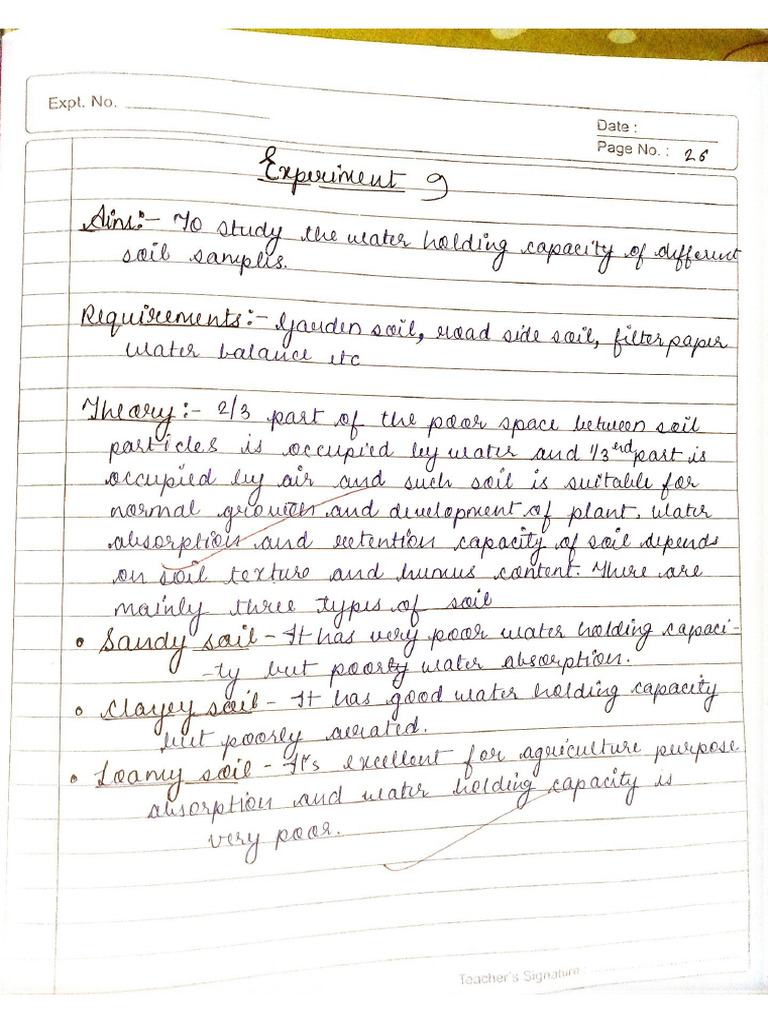 Expt. No.
Date :
Page No. : 26
Experiment 9
Aim:- To study the water holding capacity of different
soil samples.
Requirements:- Garden soil, road side soil, filter paper
water balance etc
Theory:- 2/3 part of the poor space between soil
particles is occupied by water and 1/3rd part is
occupied by air and such soil is suitable for
normal growth and development of plant. Water
absorption and retention capacity of soil depends
on soil texture and humus content. There are
mainly three types of soil
• Sandy soil - It has very poor water holding capaci-
-ty but poorly water absorption.
• Clayey soil - It has good water holding capacity
but poorly aerated.
• Loamy soil - It's excellent for agriculture purpose
absorption and water holding capacity is
very poor.
Teacher's Signature